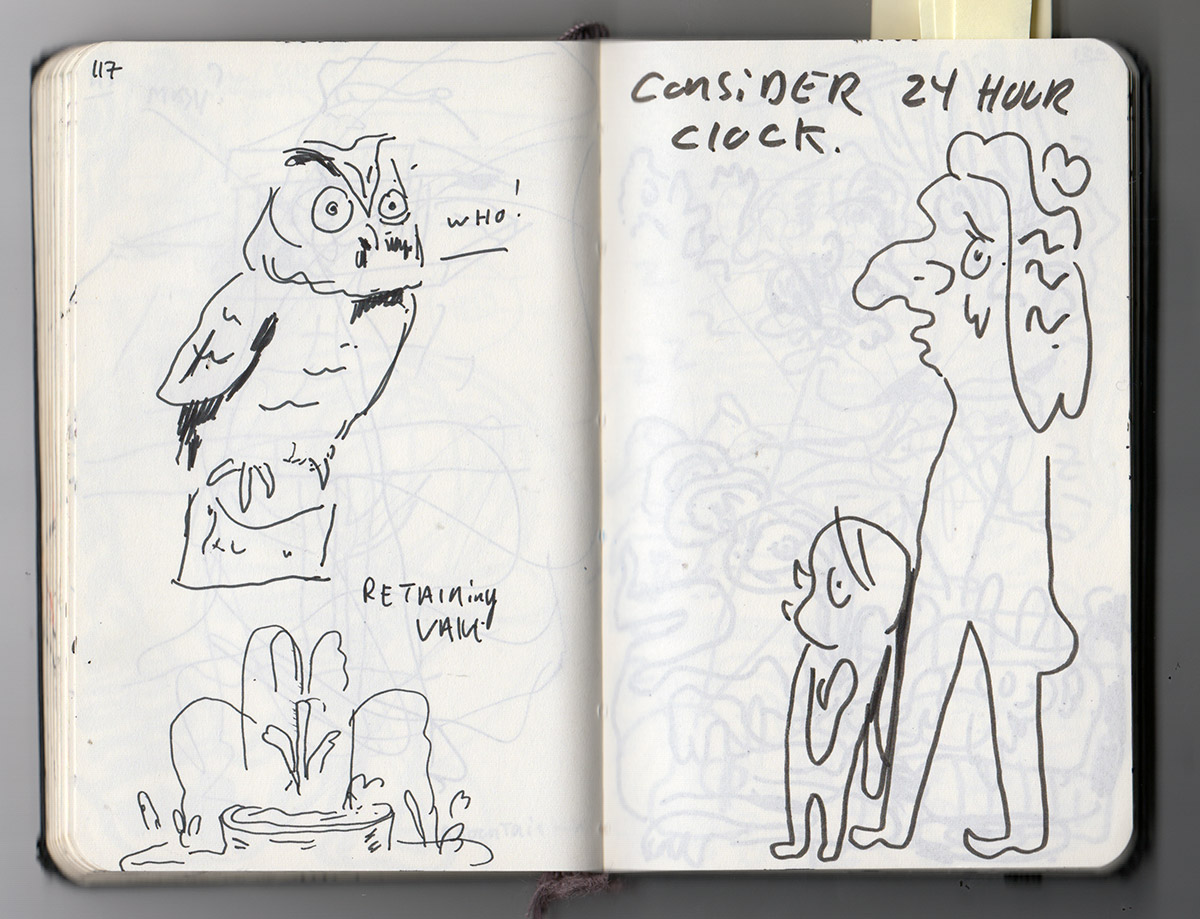 117
WHO!
RETAiNiNg
CONSiDER 24 HOUR
CLOCK.